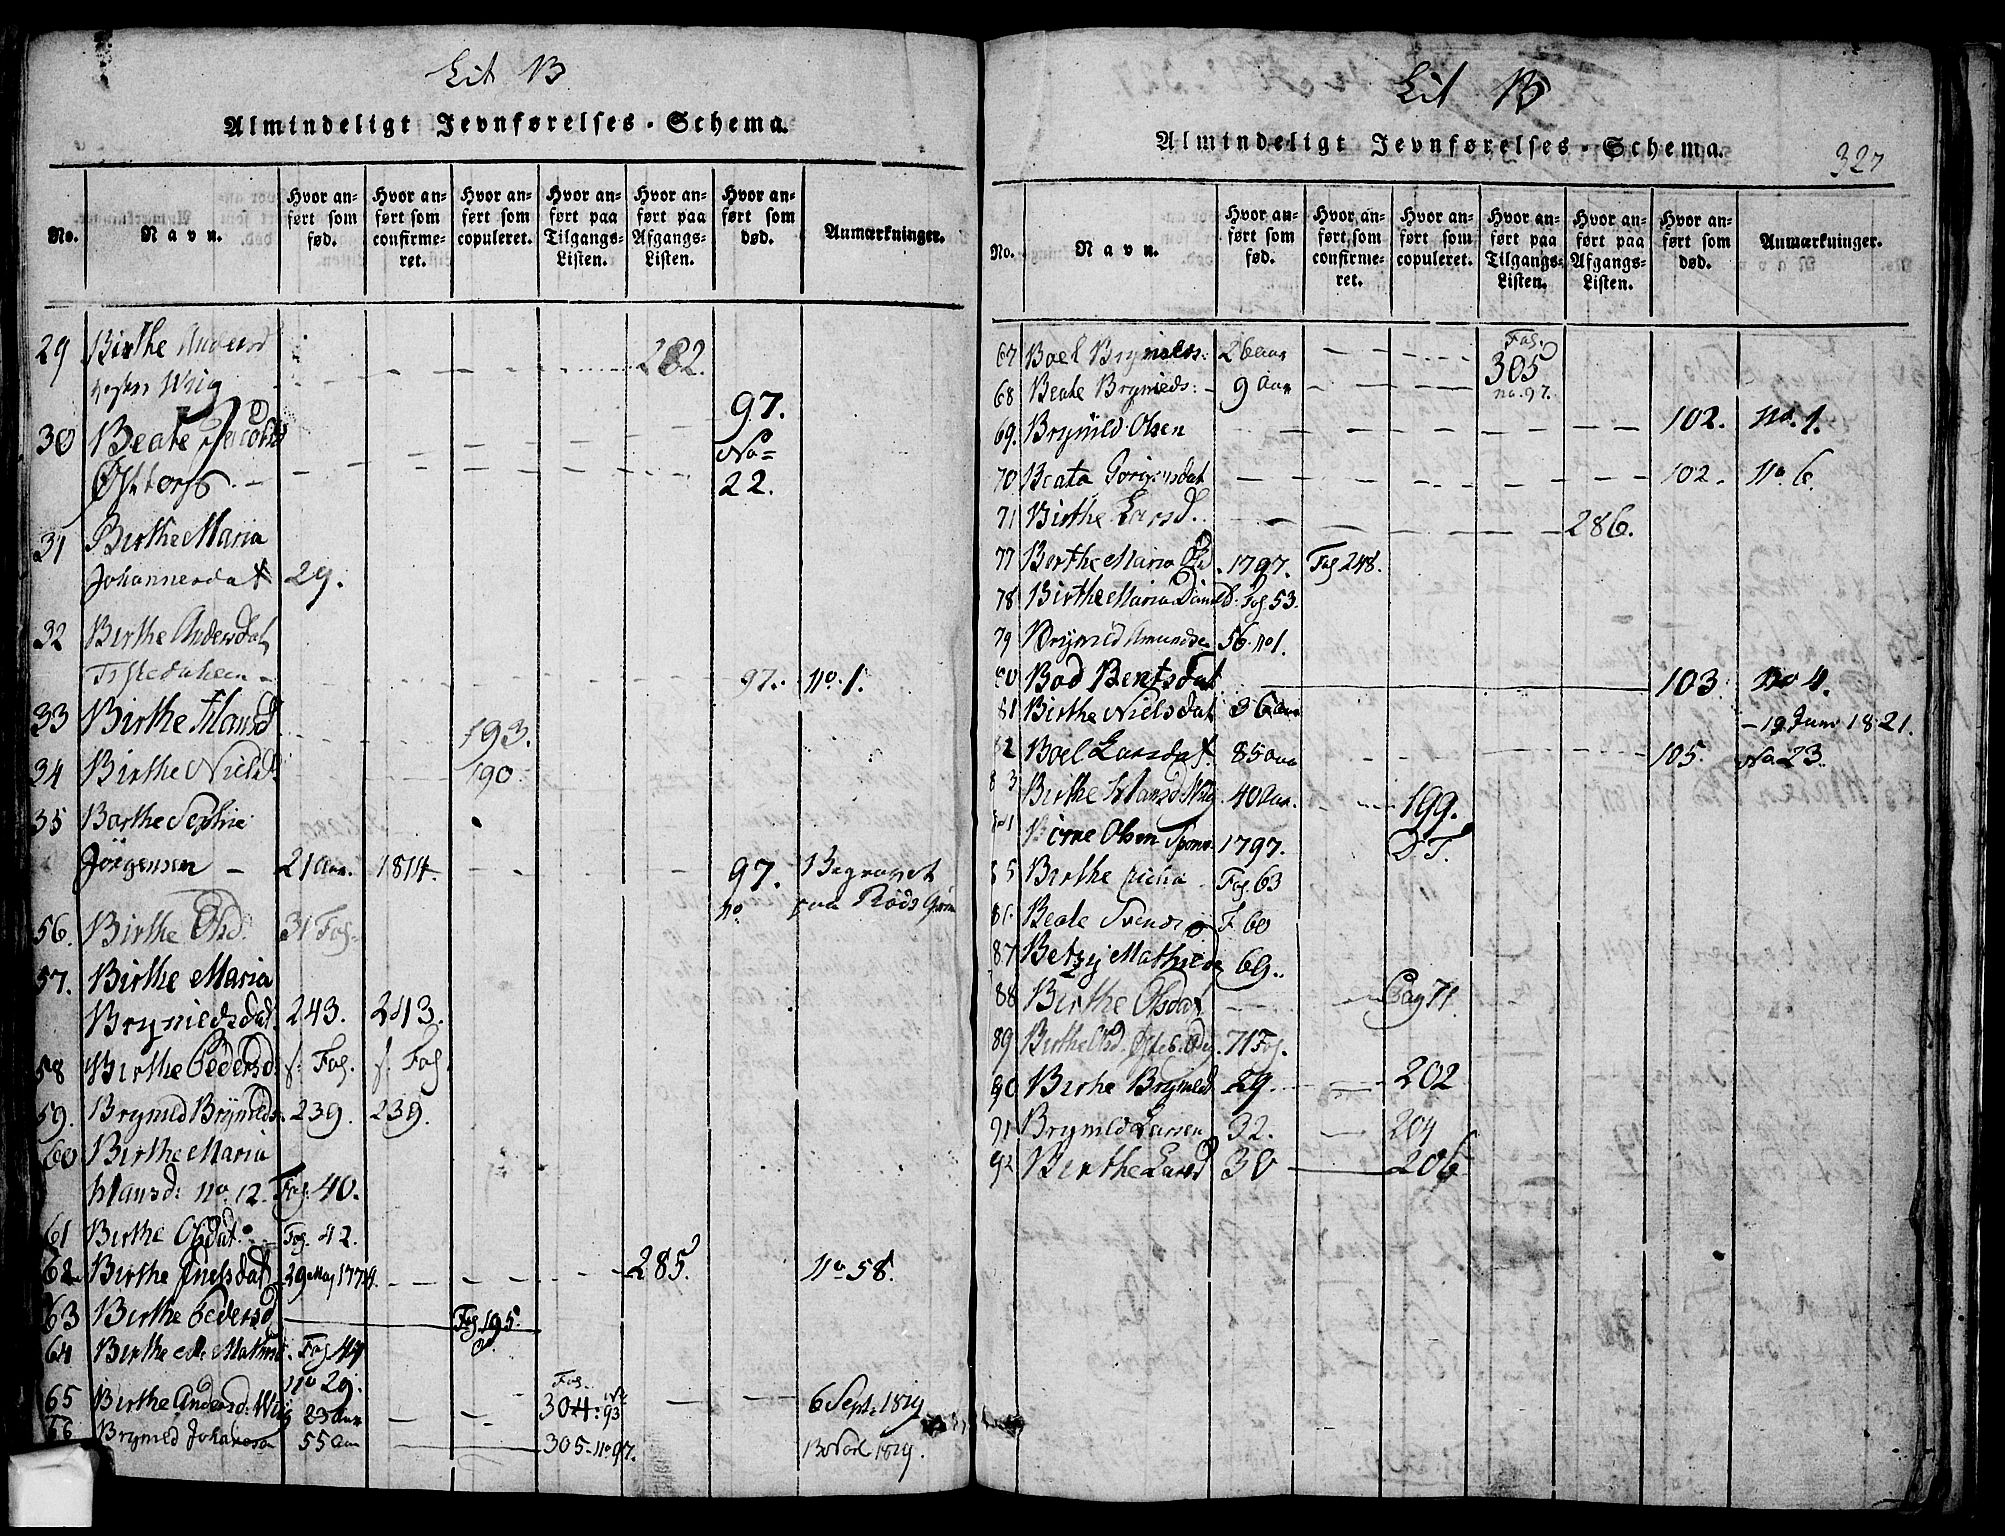 Lit B
Almindeligt Jevnførelses-Schema.
No. Navn. Hvor anført som fød. Hvor anført som confirmeret. Hvor anført som copuleret. Hvor anført paa Tilgangs-Listen. Hvor anført paa Afgangs-Listen. Hvor anført som død. Anmærkninger.
29 Birthe Andersd 282.
30 Beate Jacobsd 97.
No 22.
31 Birthe Maria
Johannesdat 29.
32 Birthe Andersdat
97. No. 1.
33 Birthe Hansd 193.
34 Birthe Nielsd 190
35 Barthe Sophie
Jörgensen - 21 Aar. 1814. 97. Begravet
no paa
56. Birthe Olsd. 31 Fol.
57. Birthe Maria
Brynildsdat. 243. 243.
58 Birthe Pedersd. s. Fol. s. Fol.
59. Brynild Brynilds. 239. 239.
60 Birthe Maria
Hansd: No. 12. Fol. 40.
61 Birthe Olsdat. Fol. 42.
62 Birthe Nielsdat 29 Maj 1774. 285. No 58.
63 Birthe Pedersd Fol 195.
64 Birthe Fol 44
No 29.
65 Birthe Andersd: 23 Aar Fol. 304: No 93 6 Sept: 1819
66 Brynild Johansen 55 Aar 305. No 97. 1819.
Lit B
327
Almindeligt Jevnførelses-Schema.
No. Navn. Hvor anført som fød. Hvor anført som confirmeret. Hvor anført som copuleret. Hvor anført paa Tilgangs-Listen. Hvor anført paa Afgangs-Listen. Hvor anført som død. Anmærkninger.
67 Boel Brynilds: 26 Aar Fol. 305
68 Beate Brynilds: - 9 Aar no. 97.
69. Brynild Olsen 102. No. 1.
70 Beata 102. No 6.
71 Birthe Larsd. 286.
77 Berthe Maria Olsd. 1797. Fol 248.
78 Birthe Maria Fol. 53.
79 Brynild Amundsen 56. No 1.
80 Boel Bentsdat 103 No 4.
81 Birthe Nielsdat 36 Aar - 19 Juni 1821.
82 Boel Larsdat. 85 Aar 105. No 23.
83 Birthe Hansd 40 Aar. 199.
Olsen 1797.
85 Birthe Fol. 63
86 Beate F 60
87 Betzy Mathilde 69.
88 Birthe Olsdat Pag 71
89 Birthe Olsd. 71 Fol.
90 Birthe Brynilds 29. 202
91 Brynild Larsen 32. 204
92 Birthe Larsd 30 206